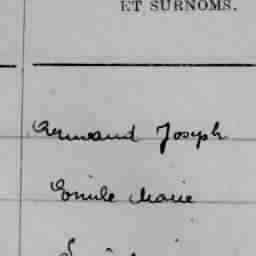 ET SURNOMS.
Armand Joseph
Emile Marie